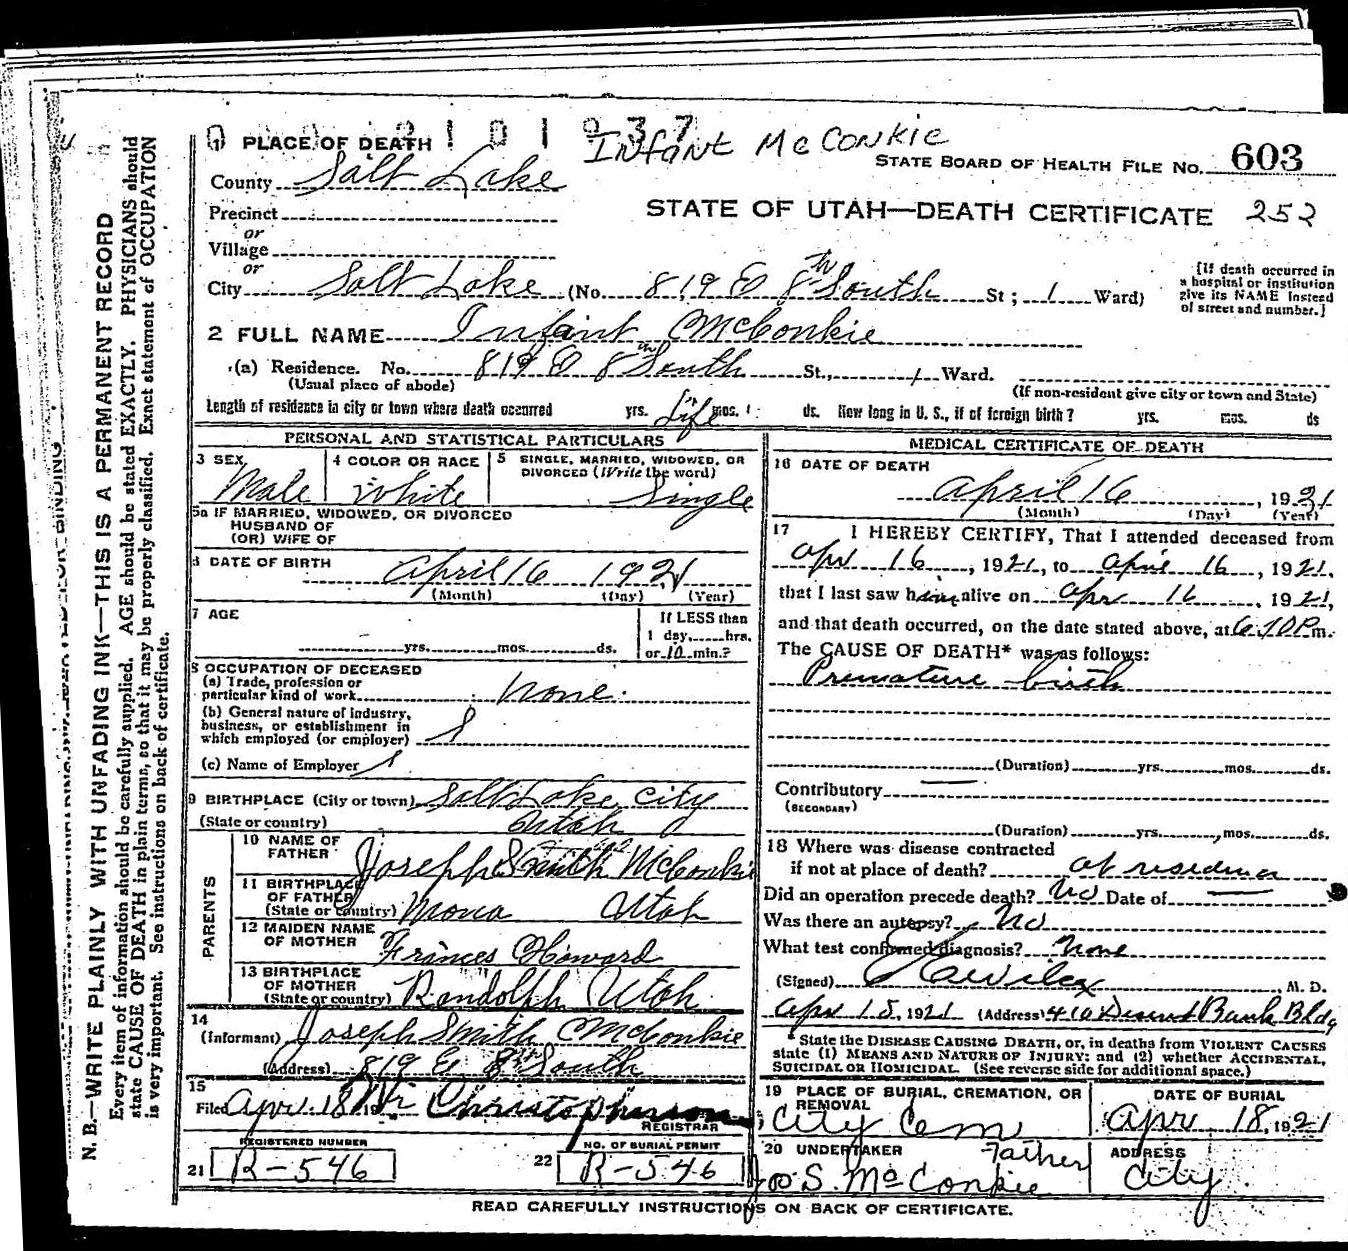 1 PLACE OF DEATH
2101037
Infant McConkie
STATE BOARD OF HEALTH FILE NO. 603
County Salt Lake
Precinct
or
Village
or
STATE OF UTAH—DEATH CERTIFICATE 252
City Salt Lake (No. 819 E 8th South St; 1 Ward)
[If death occurred in
a hospital or institution
give its NAME instead
of street and number.]
2 FULL NAME Infant McConkie
(a) Residence. No. 819 E 8th South St., 1 Ward.
(Usual place of abode) (If non-resident give city or town and State)
Length of residence in city or town where death occurred yrs. Life mos. ds. How long in U. S., if of foreign birth? yrs. mos. ds
PERSONAL AND STATISTICAL PARTICULARS
3 SEX 4 COLOR OR RACE 5 SINGLE, MARRIED, WIDOWED, OR
DIVORCED (Write the word)
Male White Single
5a IF MARRIED, WIDOWED, OR DIVORCED
HUSBAND OF
(OR) WIFE OF
6 DATE OF BIRTH
April 16 1921
(Month) (Day) (Year)
7 AGE If LESS than
1 day, hrs.
yrs. mos. ds. or 10 min.?
8 OCCUPATION OF DECEASED
(a) Trade, profession or
particular kind of work none.
(b) General nature of industry,
business, or establishment in
which employed (or employer)
(c) Name of Employer
9 BIRTHPLACE (City or town) Salt Lake City
(State or country) Utah
PARENTS
10 NAME OF
FATHER Joseph Smith McConkie
11 BIRTHPLACE
OF FATHER
(State or country) Mona Utah
12 MAIDEN NAME
OF MOTHER Frances Howard
13 BIRTHPLACE
OF MOTHER
(State or country) Randolph Utah.
14
(Informant) Joseph Smith McConkie
(Address) 819 E 8th South
15
Filed Apr 18 19 Christopherson
REGISTRAR
REGISTERED NUMBER NO. OF BURIAL PERMIT
21 R-546 22 R-546
MEDICAL CERTIFICATE OF DEATH
16 DATE OF DEATH
April 16, 1921
(Month) (Day) (Year)
17 I HEREBY CERTIFY, That I attended deceased from
Apr 16, 1921, to April 16, 1921,
that I last saw him alive on Apr 16, 1921,
and that death occurred, on the date stated above, at 6.10 P m.
The CAUSE OF DEATH* was as follows:
Premature birth
(Duration) yrs. mos. ds.
Contributory —
(SECONDARY)
(Duration) yrs. mos. ds.
18 Where was disease contracted
if not at place of death? at residence
Did an operation precede death? No Date of —
Was there an autopsy? No
What test confirmed diagnosis? None
(Signed) Wilcox, M. D.
Apr 18, 1921 (Address) 410 Deseret Bank Bldg
*State the DISEASE CAUSING DEATH, or, in deaths from VIOLENT CAUSES
state (1) MEANS AND NATURE OF INJURY: and (2) whether ACCIDENTAL,
SUICIDAL OR HOMICIDAL. (See reverse side for additional space.)
19 PLACE OF BURIAL, CREMATION, OR
REMOVAL
City Cem
DATE OF BURIAL
Apr 18, 1921
20 UNDERTAKER Father
Jos S. McConkie
ADDRESS
City.
READ CAREFULLY INSTRUCTIONS ON BACK OF CERTIFICATE.
N. B.—WRITE PLAINLY WITH UNFADING INK—THIS IS A PERMANENT RECORD
Every item of information should be carefully supplied. AGE should be stated EXACTLY. PHYSICIANS should
state CAUSE OF DEATH in plain terms, so that it may be properly classified. Exact statement of OCCUPATION
is very important. See instructions on back of certificate.